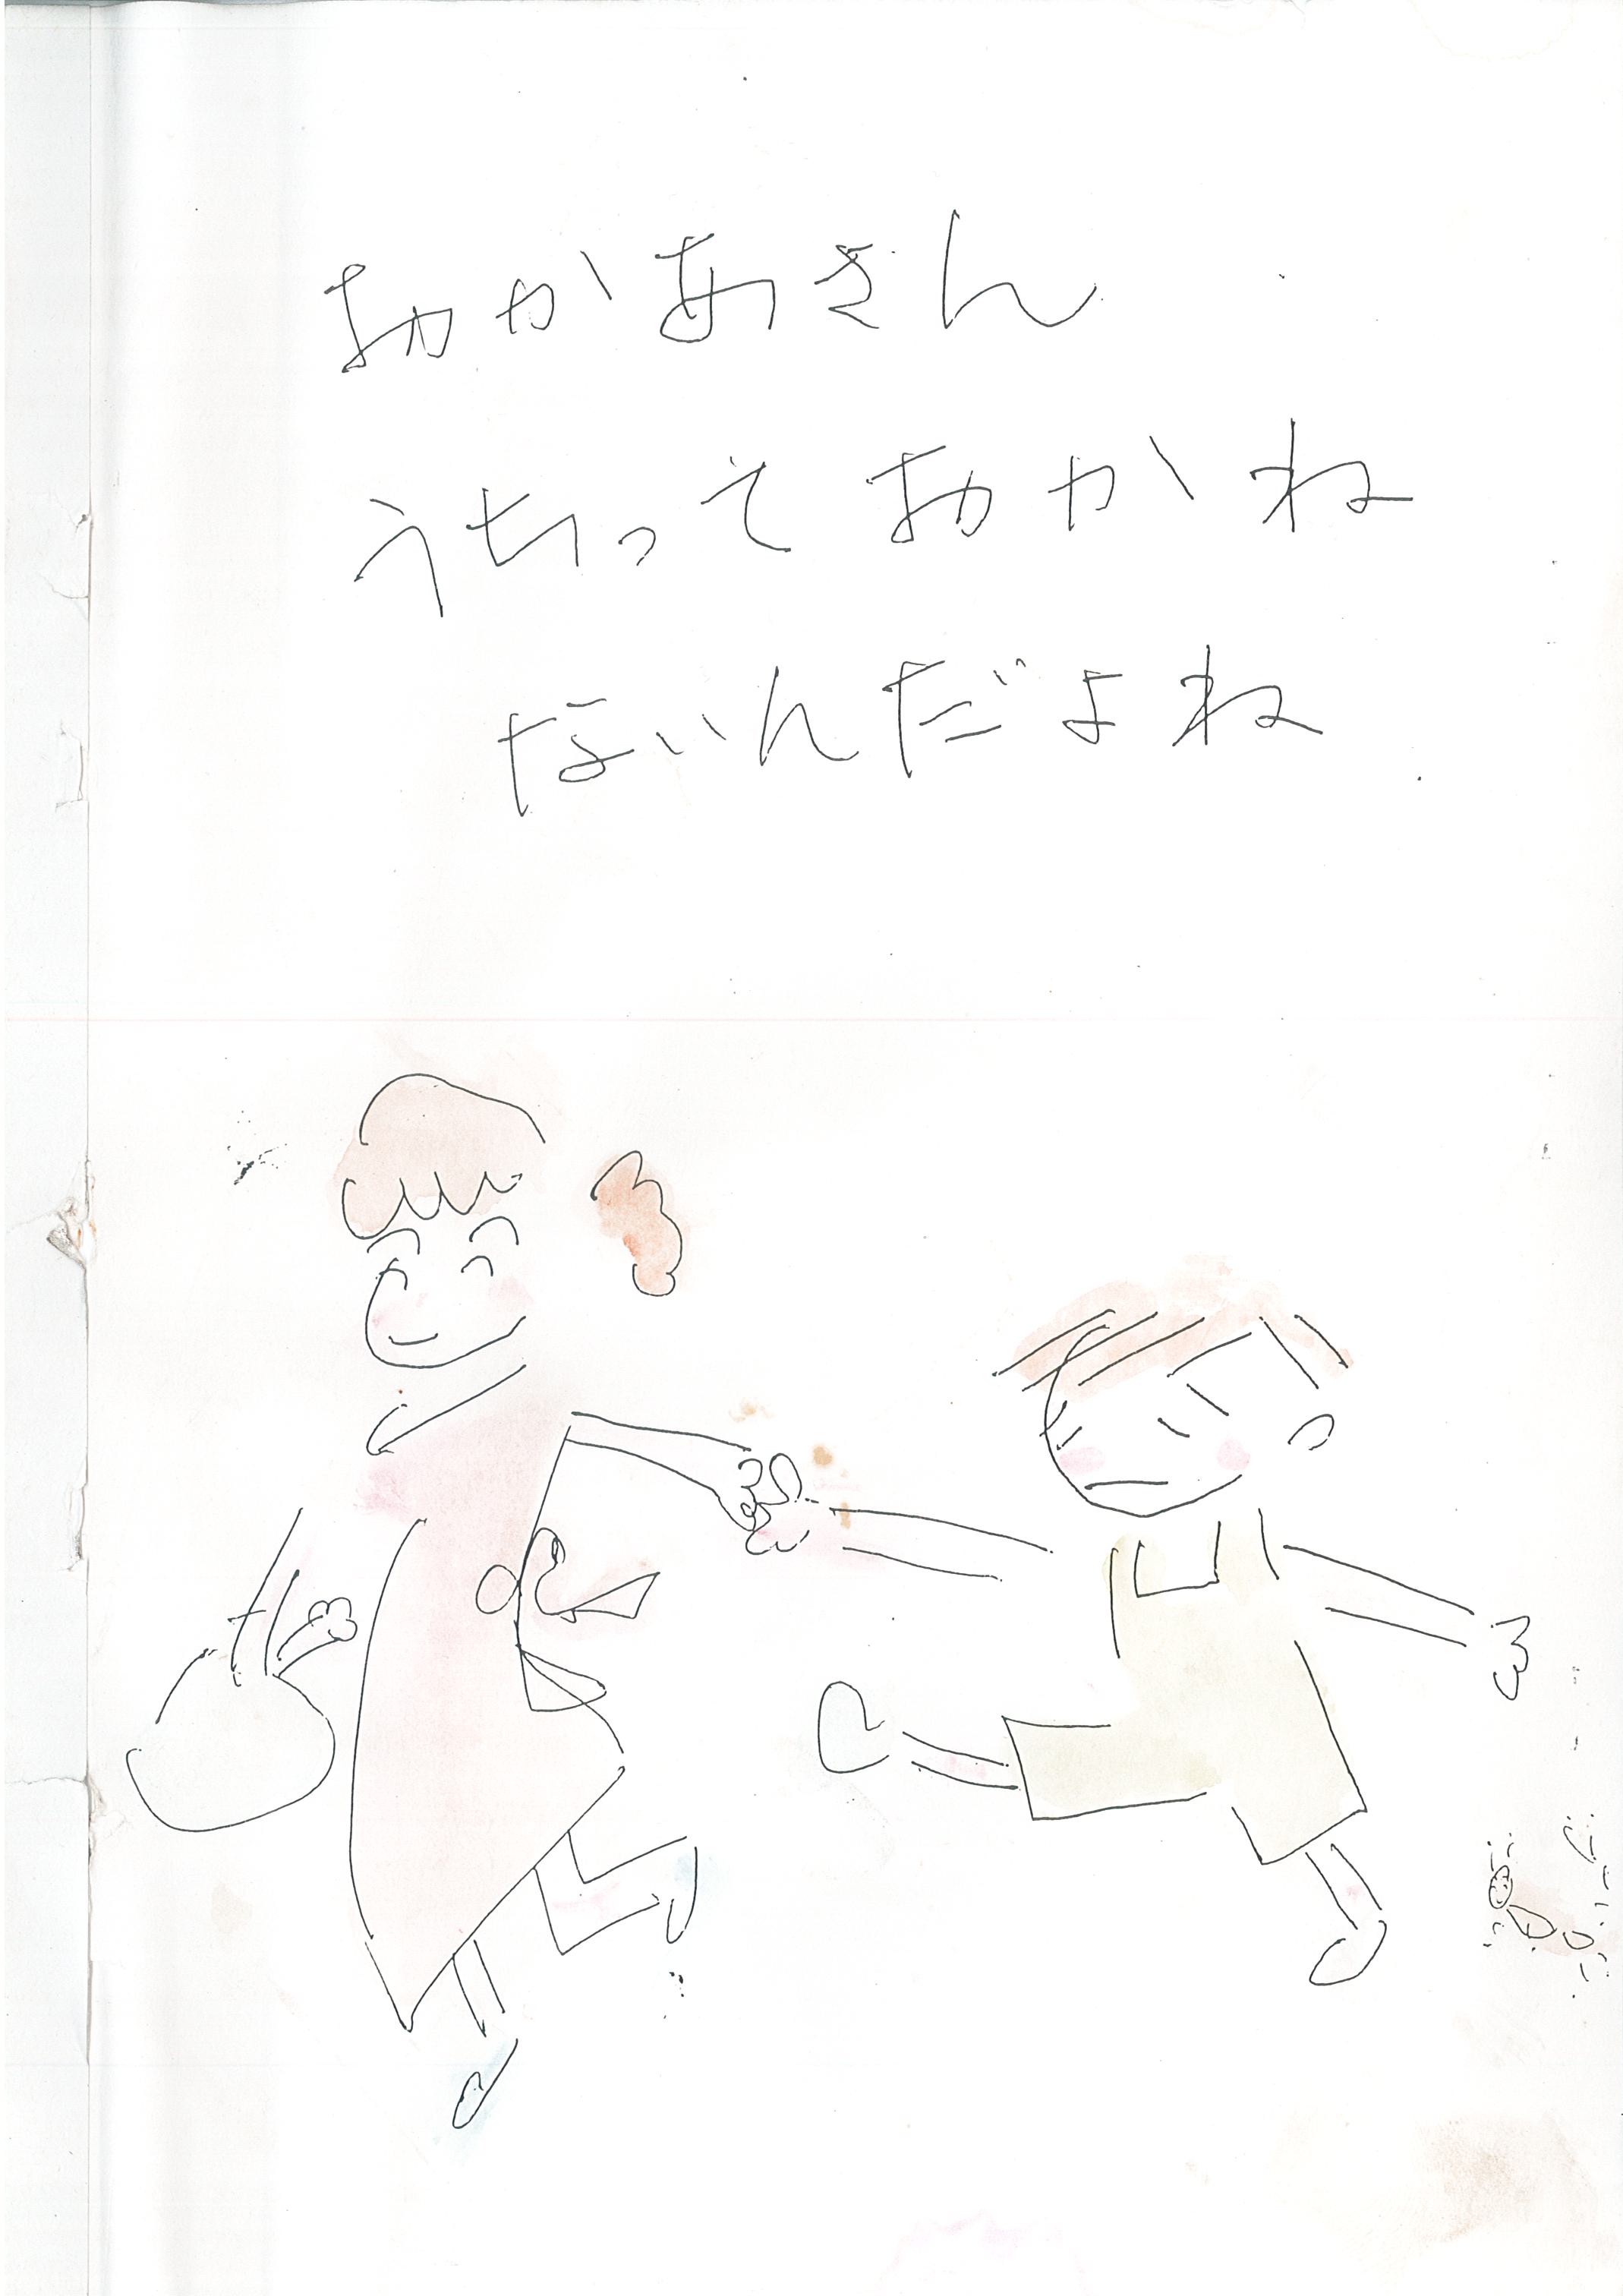 おかあさん
うちっておかね
ないんだよね